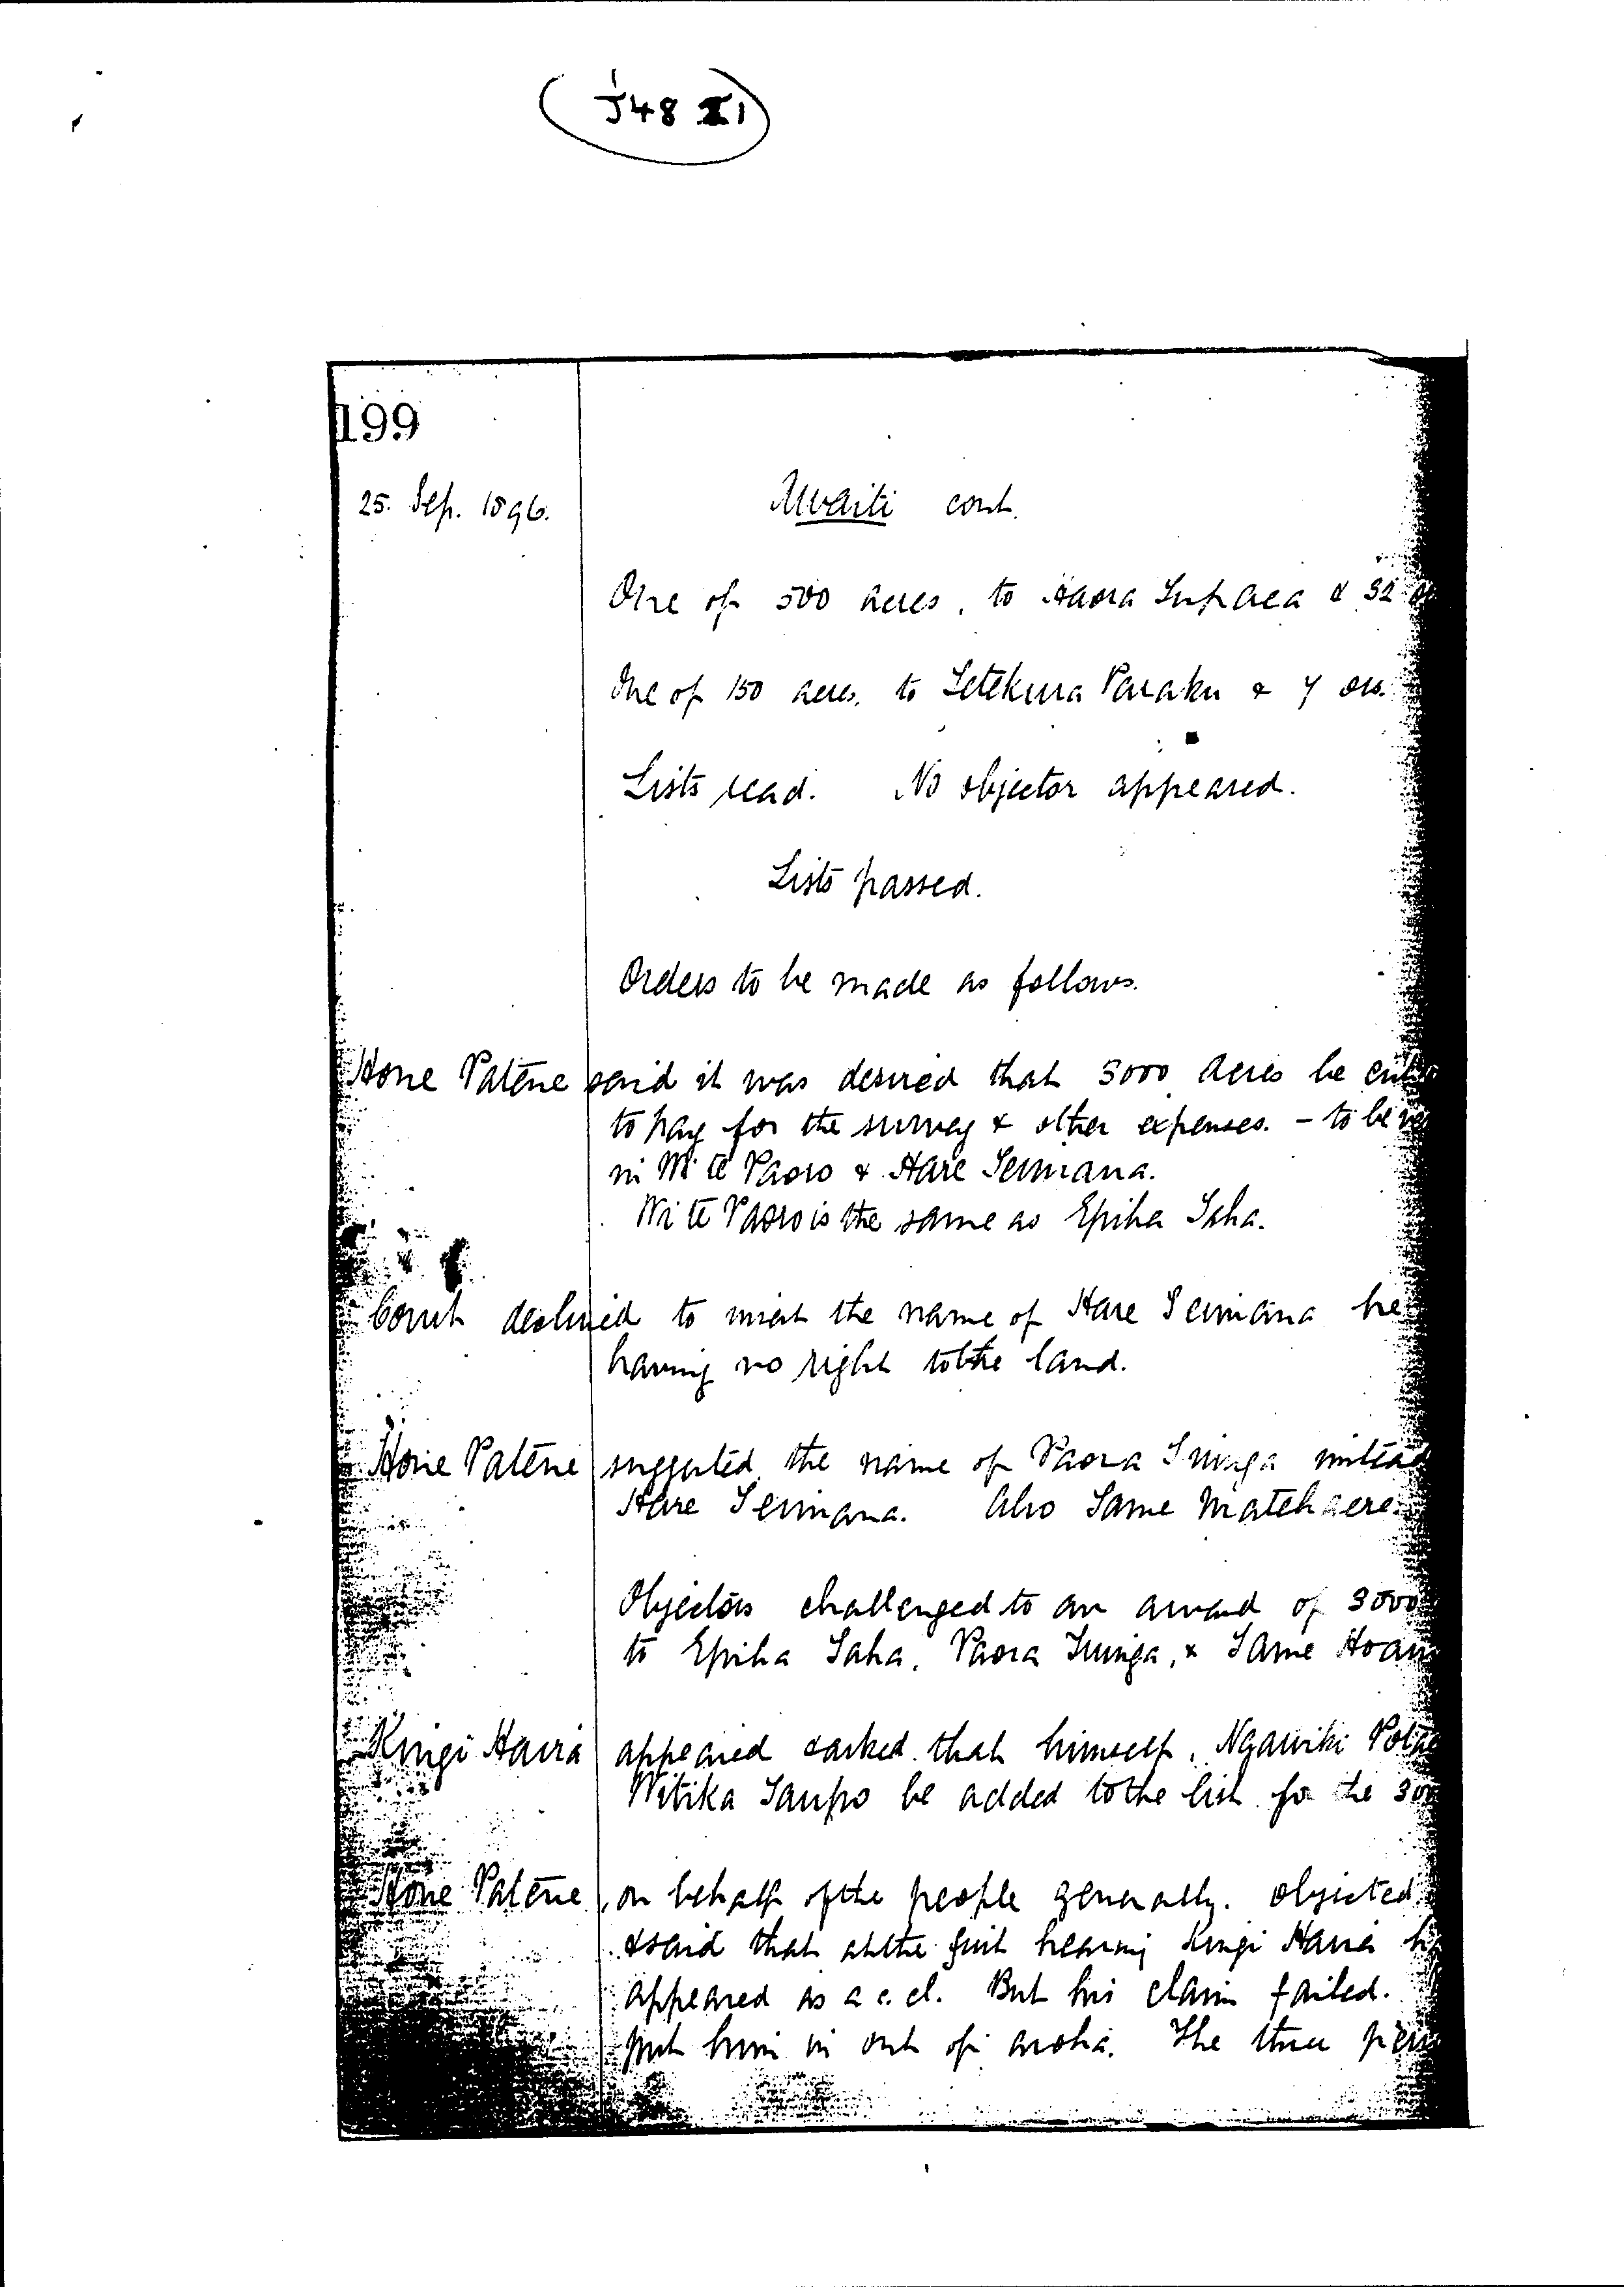 J48
199
25. Sep. 1896. Awaiti cont.
One of 500 acres, to Haora Tupaea & 32
One of 150 acres, to Tetekura Paraku & 7 ors.
Lists read. No objector appeared.
Lists passed.
Orders to be made as follows.
Hone Patene said it was desired that 3000 acres be
to pay for the survey & other expenses. – to be
in Wi te Paoro & Hare Teimana.
Wi te Paoro is the same as Epiha Taha.
Court declined to insert the name of Hare Teimana he
having no right to the land.
Hone Patene suggested the name of Paora Tuinga
Hare Teimana. Also Tame Matehaere
Objectors challenged to an award of 3000
to Epiha Taha, Paora Tuinga, & Tame
Kingi Haira appeared & asked that himself, Ngawiki
Witika Taupo be added to the list for the
Hone Patene, on behalf of the people generally. objected
& said that at the first hearing Kingi Haira
appeared as a c. cl. But his claim failed.
put him in out of aroha. The three